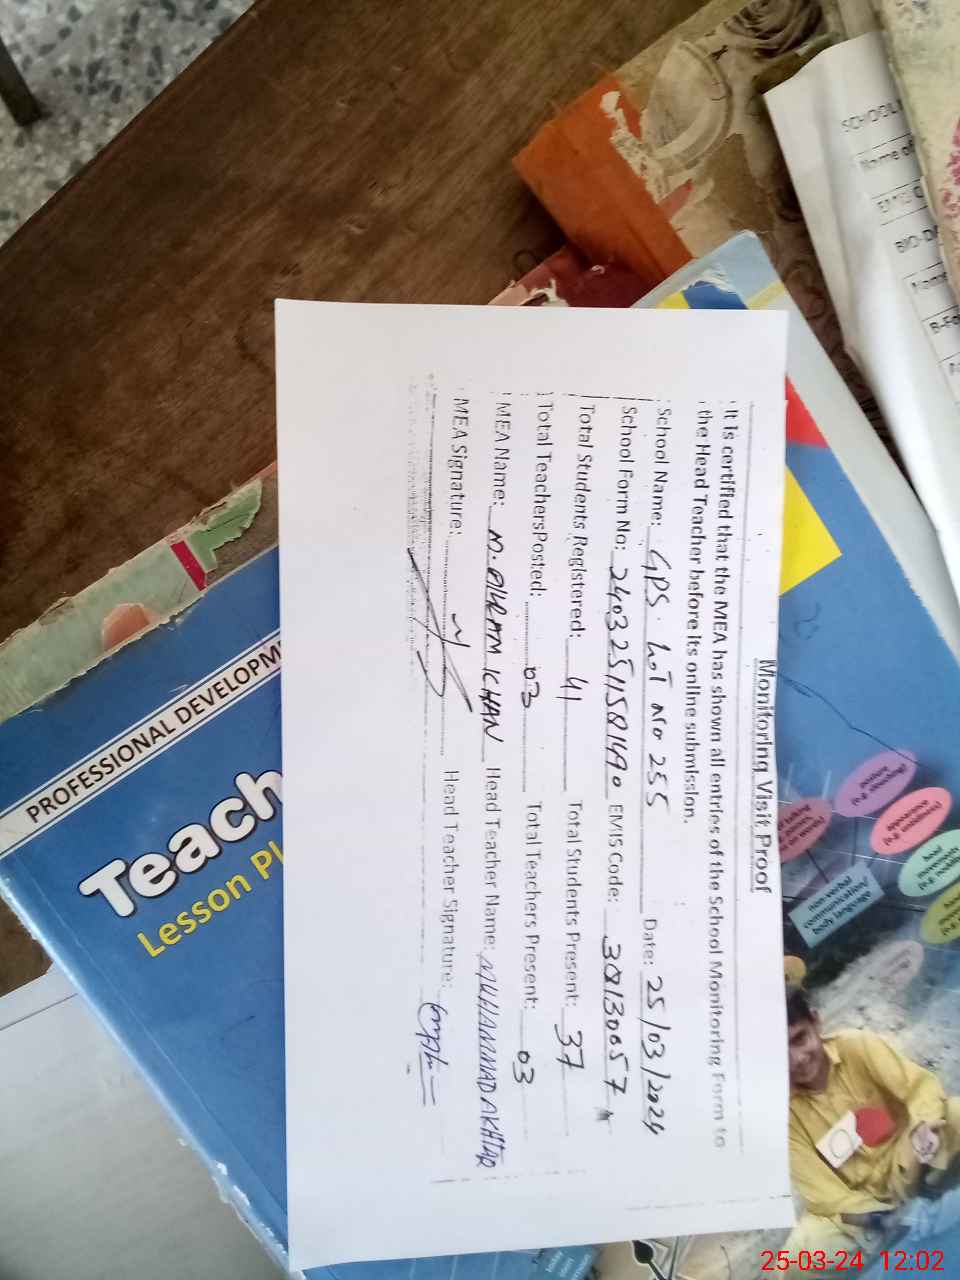 Monitoring Visit Proof
It is certified that the MEA has shown all entries of the School Monitoring Form to
the Head Teacher before its online submission.
School Name: GPS. LOT NO 255 Date: 25/03/2024
School Form No: 24032511581490 EMIS Code: 38130057
Total Students Registered: 41 Total Students Present: 37
Total TeachersPosted: 03 Total Teachers Present: 03
MEA Name: M. AKRAM KHAN Head Teacher Name: MUHAMMAD AKHTAR
MEA Signature: Head Teacher Signature:
PROFESSIONAL DEVELOPM
Teach
Lesson Pl
posture
(e.g. slouching)
appearance
(e.g. untidiness)
head
movements
(e.g. nodding)
non-verbal
communication/
body language
SCHOOL
Name of
EMIS C
BIO-DA
Name
B-Fo
25-03-24 12:02